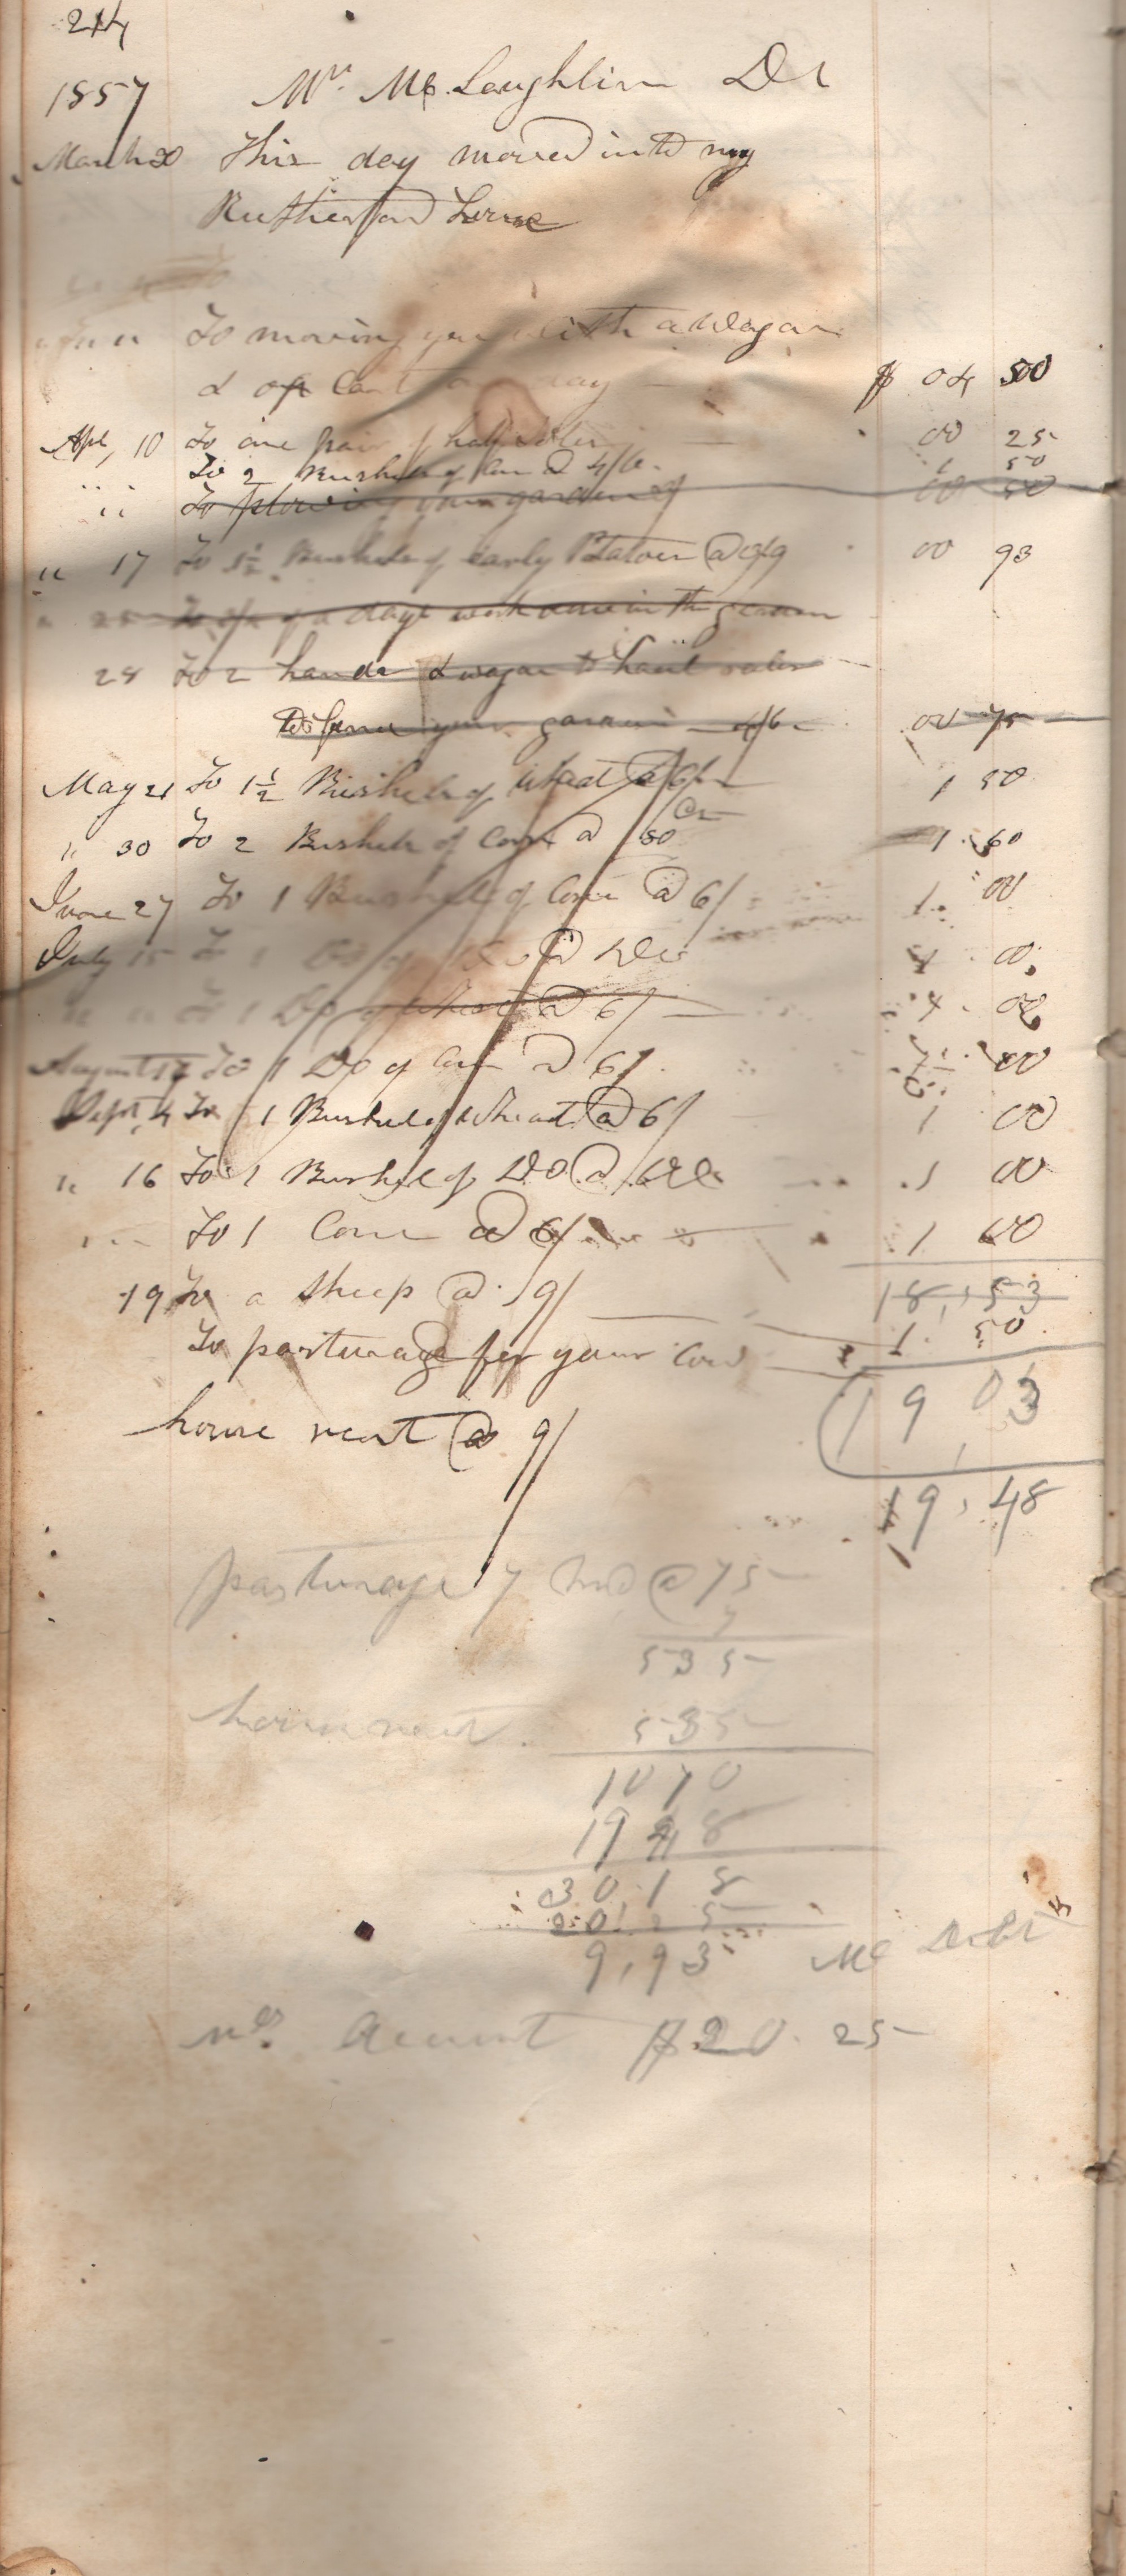 214
1857 Mr. Mc Laughlin Dr
March 20 This day moved into my
Rutherford
To moving you with a Wagon
& day $ 04 50
Apl, 10 To one pair of half soles 00 25
To 2 Bushels of Corn @ 4/6 1 50
" " To plowing your garden 00 50
" 17 To 1½ Bushels of early Potatoes @ 3/9 00 93
" 25 of a days work in the garden
28 To 2 hands & wagon to haul rales
your garden 4/6 00 75
May 21 To 1½ Bushels of Wheat @ 6/ 1 50
" 30 To 2 Bushels of Corn @ 80 cts 1 60
June 27 To 1 Bushel of Corn @ 6/ 1. 00
July 15 To 1 Do of @ Do 1 00
" " To 1 Do of Wheat @ 6/ 1. 00
August 17 To 1 Do of Corn @ 6/ 1 00
Sept, 4 To 1 Bushel of Wheat @ 6/ 1 00
" 16 To 1 Bushel of Do @ Do 1 00
To 1 Corn @ 6/ 1 00
18,53
19 To a Sheep @ 9/ 1. 50
To pasturage for your Cow
19,03
house rent @ 9/
19,48
pasturage 7 @ 75
7
535
house rent. 535
1070
1948
30,18
20,25
9,93 Mc Debt
Mc Acount $20.25